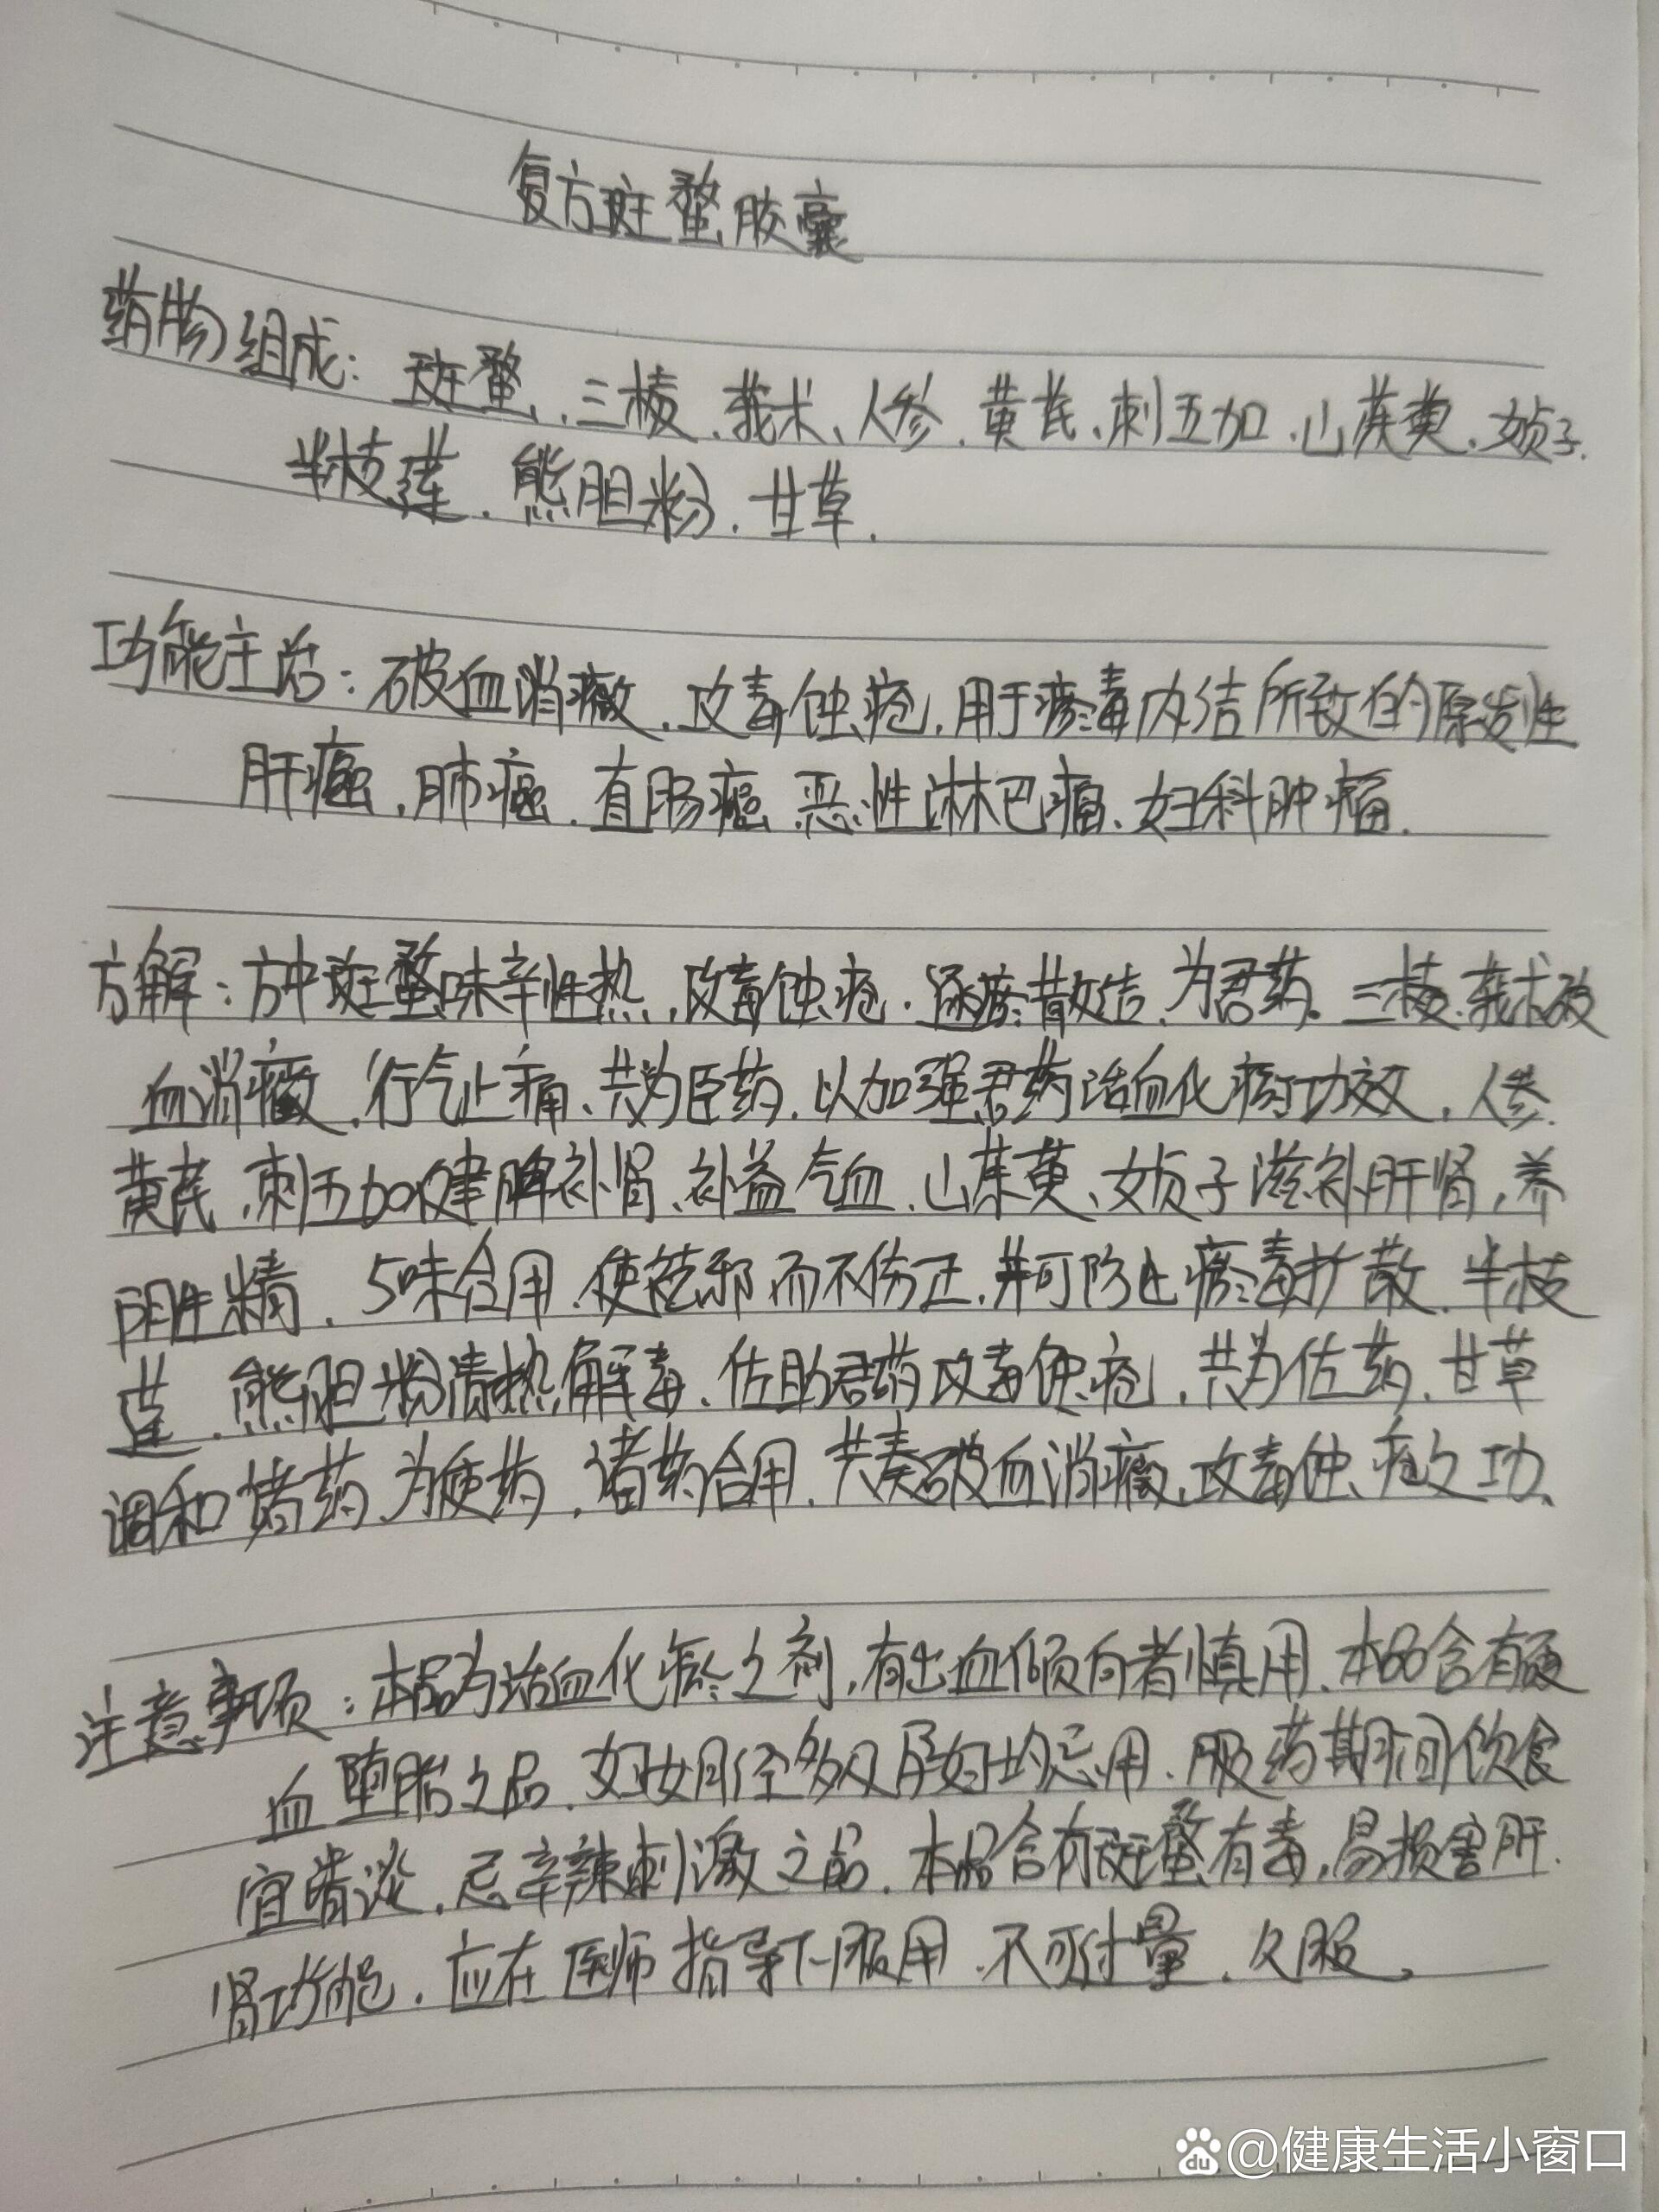 复方斑蝥胶囊
药物组成：斑蝥、三棱、莪术、人参、黄芪、刺五加、山茱萸、女贞子、
半枝莲、熊胆粉、甘草.
功能主治：破血消癥，攻毒蚀疮，用于瘀毒内结所致的原发性
肝癌，肺癌、直肠癌、恶性淋巴瘤、妇科肿瘤.
方解：方中斑蝥味辛性热，攻毒蚀疮、逐瘀散结、为君药。三棱、莪术破
血消癥，行气止痛、共为臣药，以加强君药活血化瘀功效，人参、
黄芪、刺五加健脾补肾、补益气血、山茱萸、女贞子滋补肝肾，养
阴生精，5味合用、使祛邪而不伤正，并可防止瘀毒扩散、半枝
莲、熊胆粉清热解毒、佐助君药攻毒蚀疮，共为佐药、甘草
调和诸药、为使药，诸药合用、共奏破血消癥，攻毒蚀疮之功、
注意事项：本品为活血化瘀之剂，有出血倾向者慎用、本品含有破
血堕胎之品、妇女月经多及孕妇均忌用、服药期间饮食
宜清淡，忌辛辣刺激之品、本品含有斑蝥有毒，易损害肝、
肾功能，应在医师指导下服用、不可过量、久服。
@健康生活小窗口